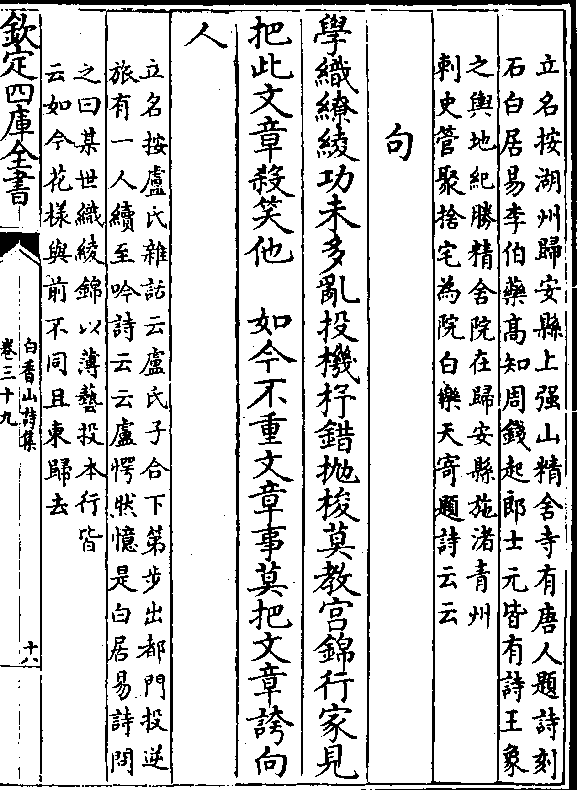 立名按湖州歸安縣上强山精舍寺有唐人題詩刻
石白居易李伯藥髙知周錢起郎士元皆有詩王象
之輿地紀勝精舍院在歸安縣施渚青州
刺史管聚捨宅為院白樂天寄題詩云云
句
學織繚綾功未多亂投機杼錯抛梭莫教宫錦行家見
把此文章殺笑他　如今不重文章事莫把文章誇向
人
立名按盧氏雜話云盧氏子合下第步出都門投逆
旅有一人續至吟詩云云盧愕狀憶是白居易詩問
之曰某世織綾錦以薄藝投本行皆
云如今花樣與前不同且東歸去
欽定四庫全書
白香山詩集
卷三十九
十八